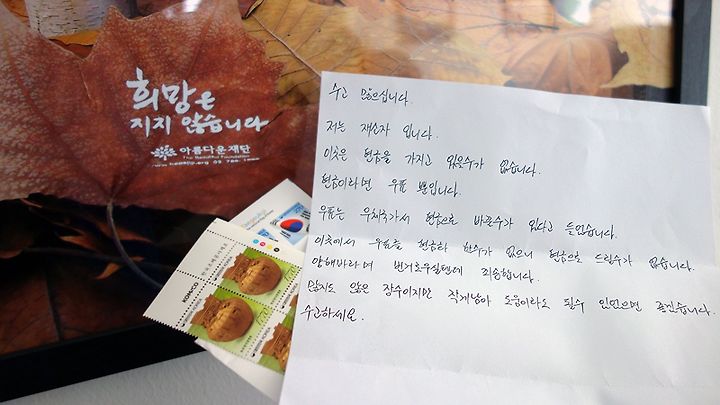 희망은
지지 않습니다
아름다운재단
The Beautiful Foundation
수고 많으십니다.
저는 재소자 입니다.
이곳은 현금을 가지고 있을수가 없습니다.
현금이라면 우표 뿐입니다.
우표는 우체국가서 현금으로 바꿀수가 있다고 들었습니다.
이곳에서 우표를 현금화 할수가 없으니 현금으로 드릴수가 없습니다.
양해바라며 번거로우실텐데 죄송합니다.
많지도 않은 장수이지만 작게남아 도움이라도 될수 있었으면 좋겠습니다.
수고하세요.
KOREA